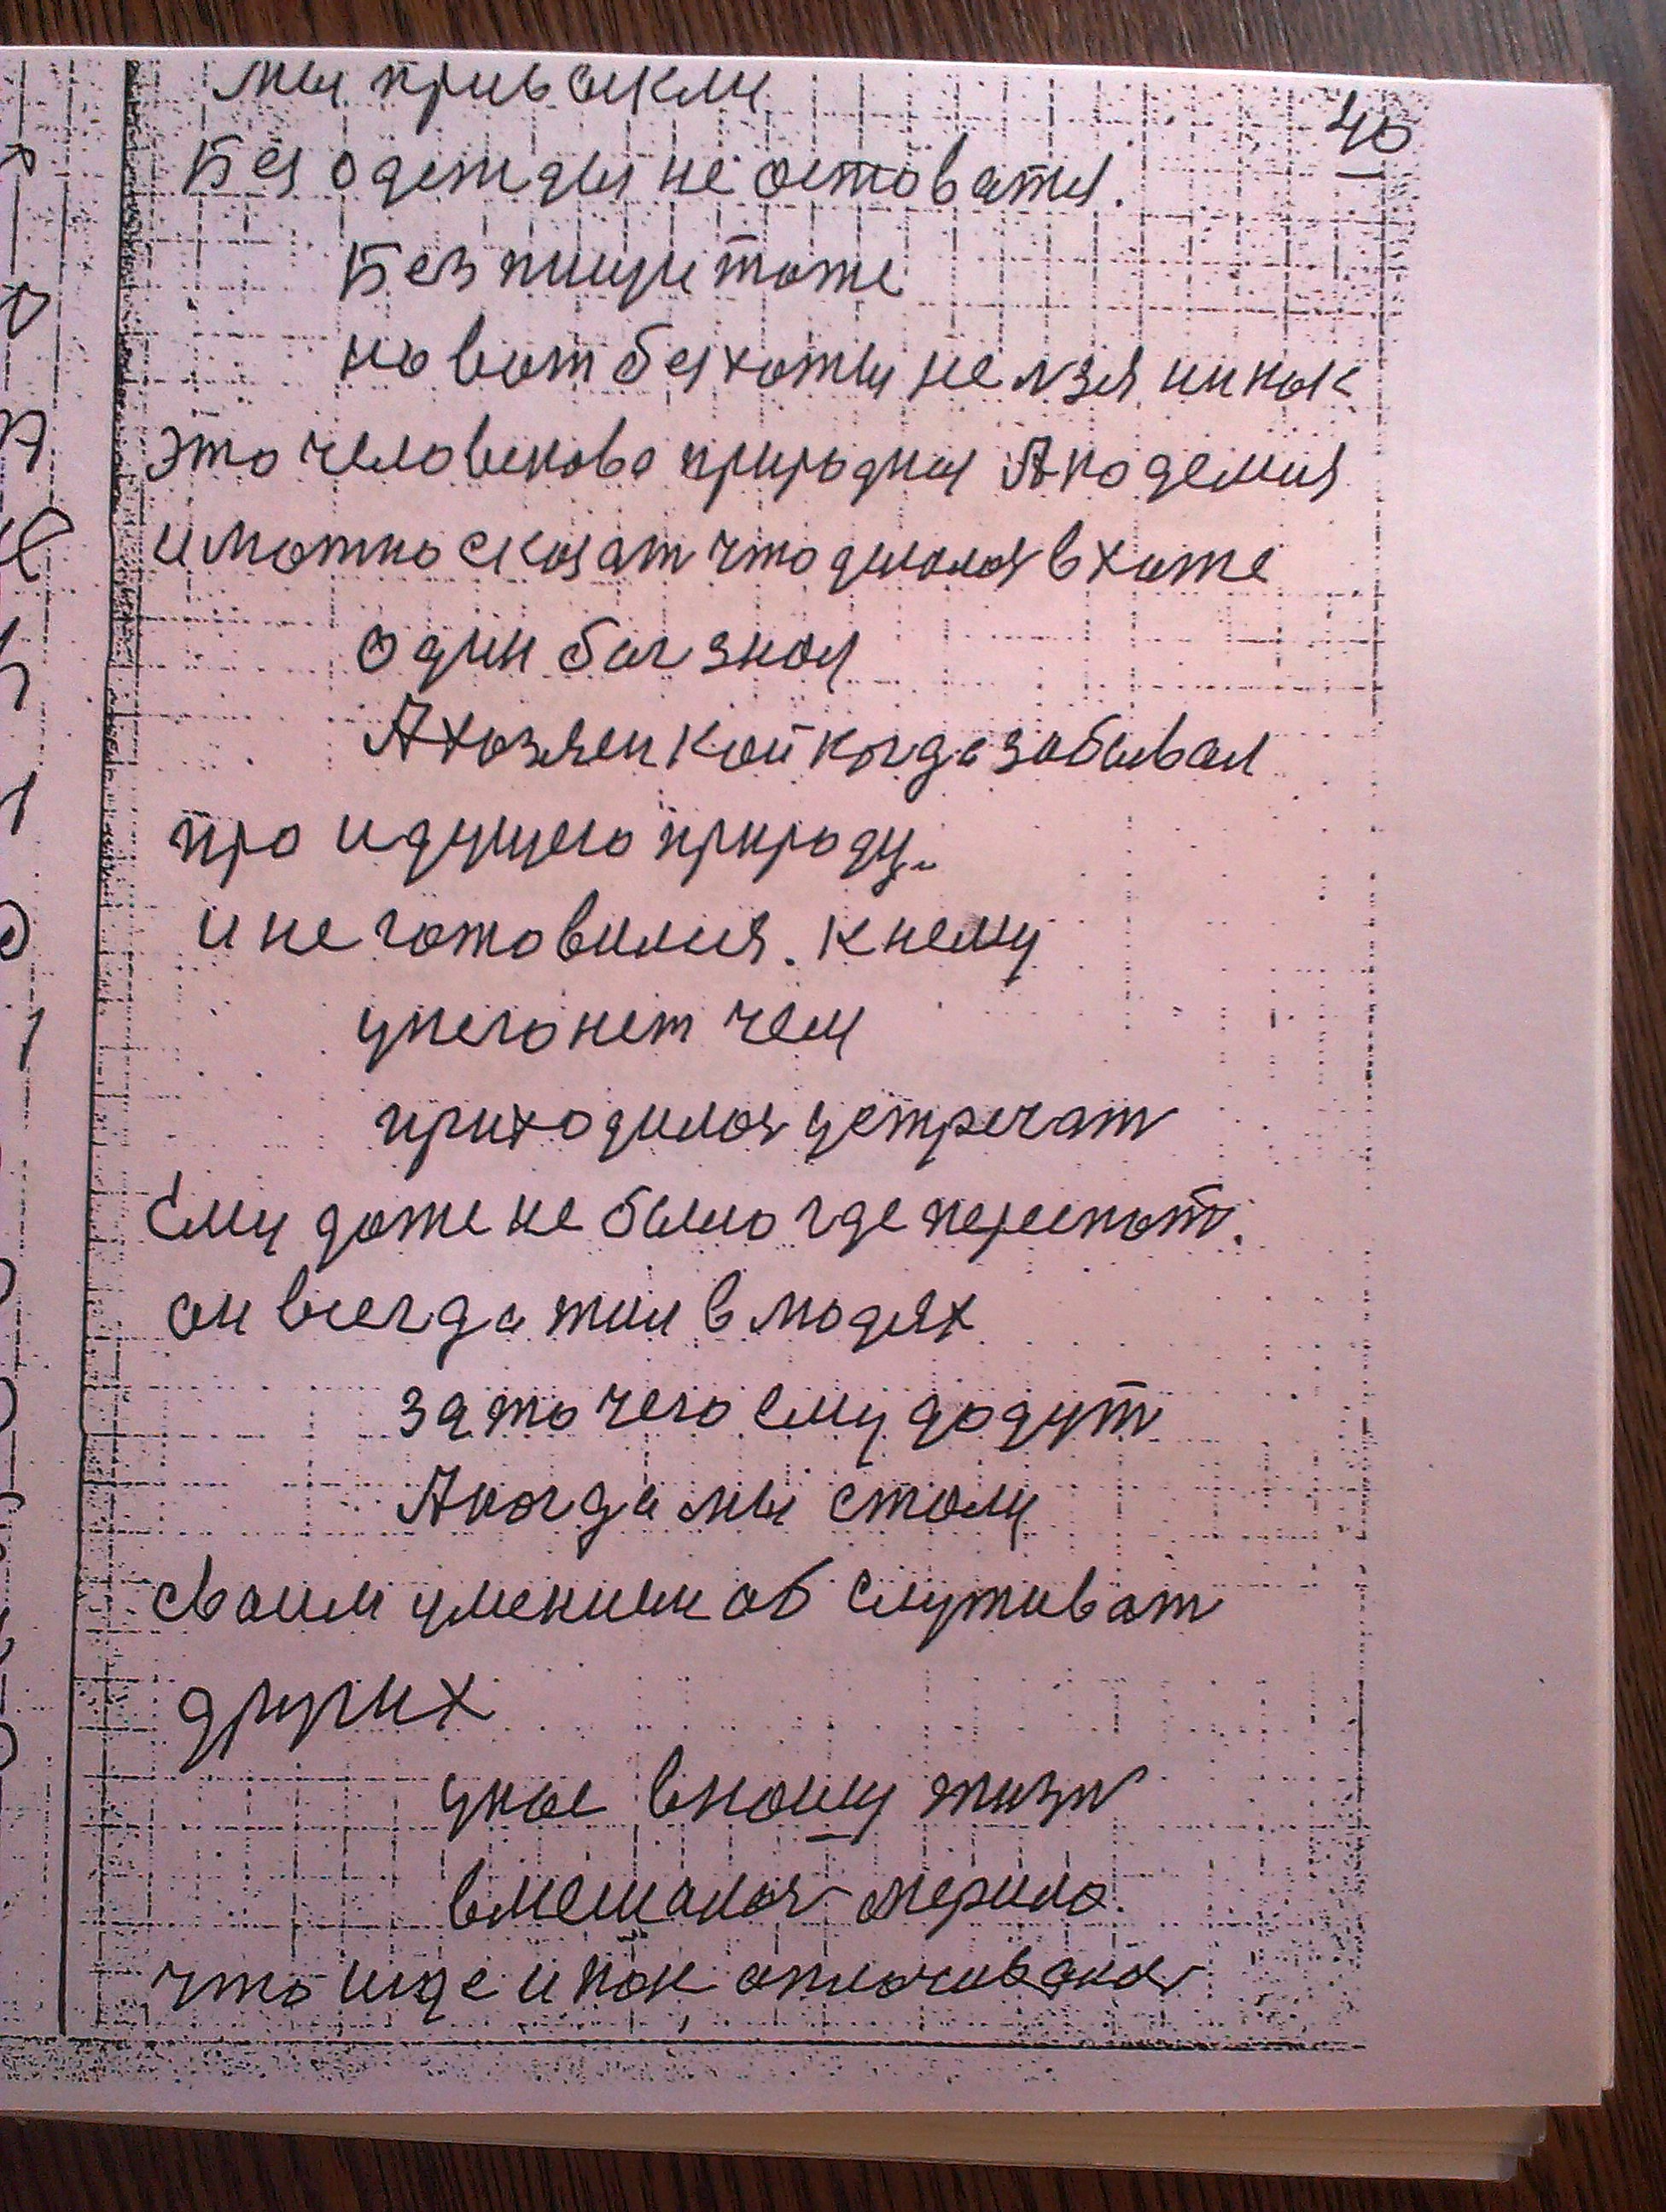 40
мы привыкли
Без одежды не оставатя.
Без пищи тоже
но вот без хаты нелзя никак
это человекова природная Академия
и можно сказат что делалоя в хате
один бог знал
А хозяен кой когда забывал
про идущего природу.
и не готовился. к нему
унего нет чем
приходилоя устречат
Ему даже не было где переспат.
он всегда жил в людях
за то чего ему дадут
А когда мы стали
своим умением об служиват
других
унас внашу жизн
вмешалоя мерило.
что иде и как оплачивалоя